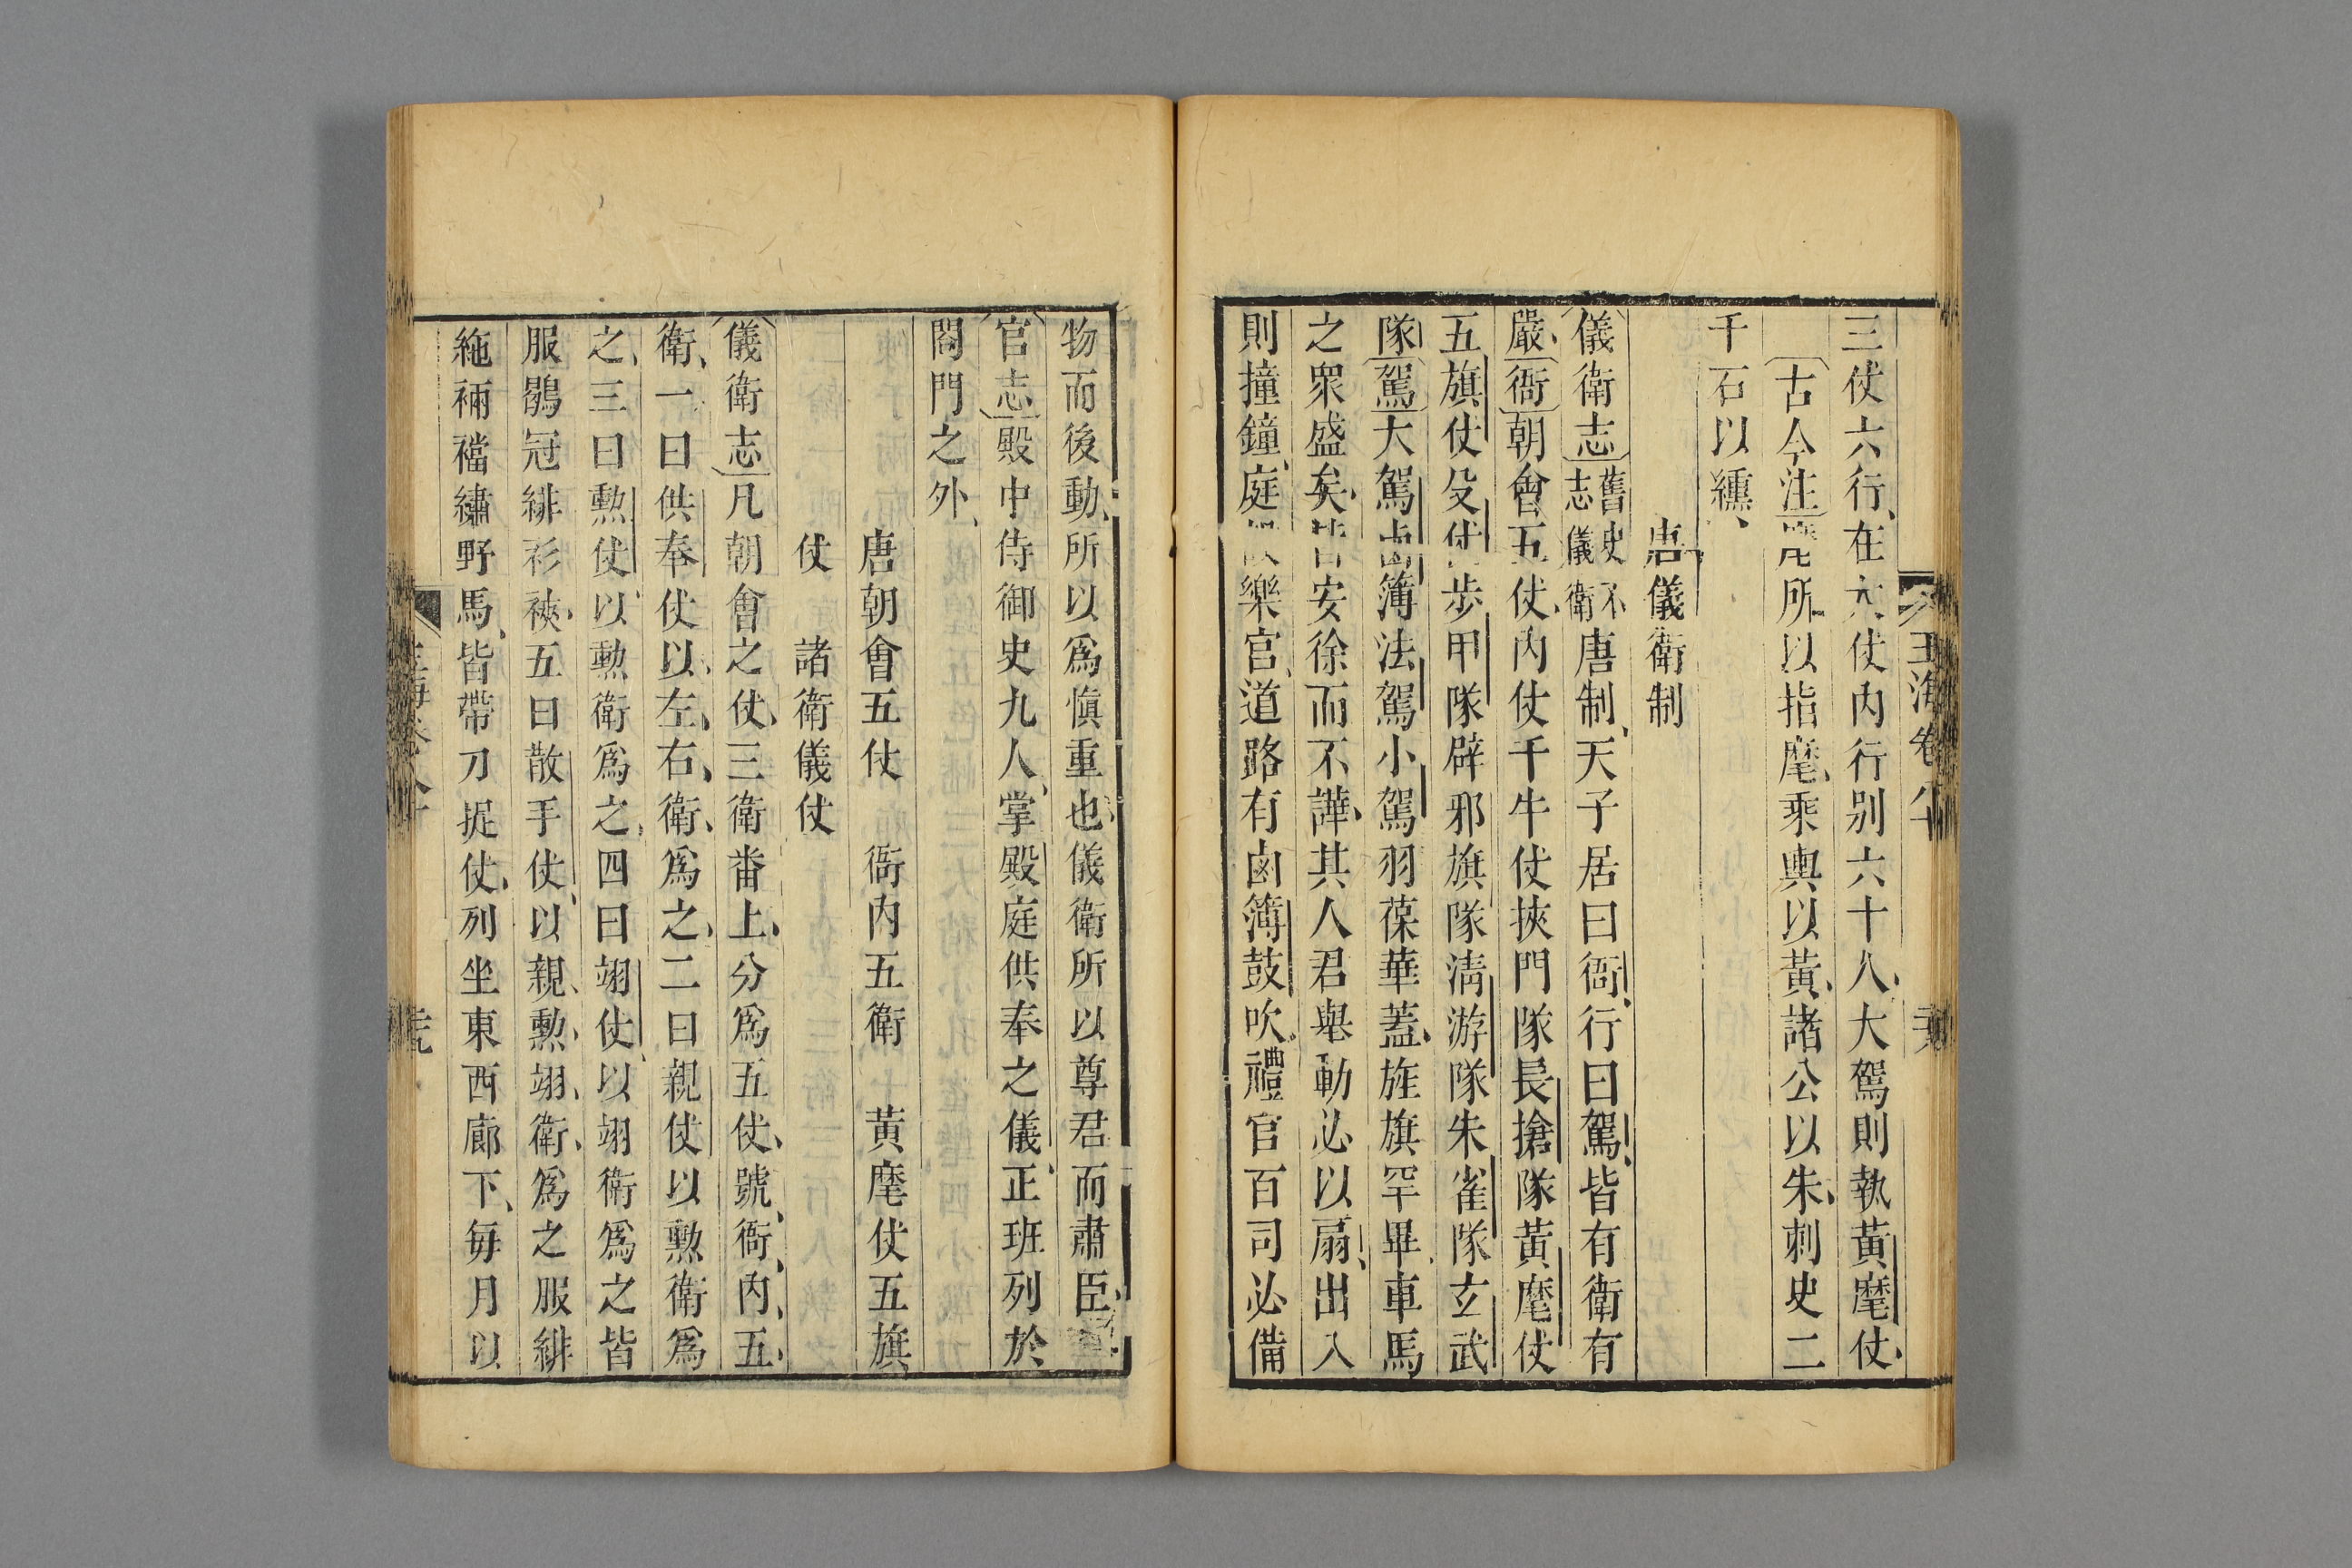 玉海卷八十
三仗六行在六仗内行别六十八大駕則執黃麾仗
古今注麾所以指麾乘輿以黃諸公以朱刺史二
千石以纁
唐儀衛制
儀衛志舊史不志儀衛唐制天子居曰衙行曰駕皆有衛有
嚴衙朝會五仗内仗千牛仗挾門隊長搶隊黃麾仗
五旗仗殳仗步甲隊辟邪旗隊清游隊朱雀隊玄武
隊駕大駕鹵簿法駕小駕羽葆華蓋旌旗罕畢車馬
之衆盛矣皆安徐而不譁其人君舉動必以扇出入
則撞鐘庭樂官道路有鹵簿鼓吹禮官百司必備
物而後動所以爲愼重也儀衛所以尊君而肅臣
官志殿中侍御史九人掌殿庭供奉之儀正班列於
閤門之外
唐朝會五仗 衙内五衛 黃麾仗五旗
仗 諸衛儀仗
儀衛志凡朝會之仗三衛番上分爲五仗號衙内五
衛一曰供奉仗以左右衛爲之二曰親仗以勳衛爲
之三曰勳仗以勳衛爲之四曰翊仗以翊衛爲之皆
服鶡冠緋衫裌五曰散手仗以親勳翊衛爲之服緋
絁裲襠繡野馬皆帶刀捉仗列坐東西廊下每月以